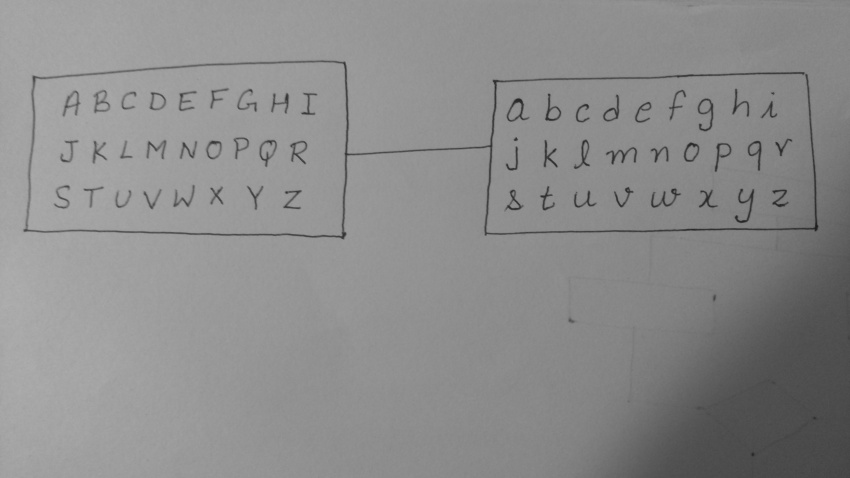 A B C D E F G H I
J K L M N O P Q R
S T U V W X Y Z
a b c d e f g h i
j k l m n o p q r
s t u v w x y z